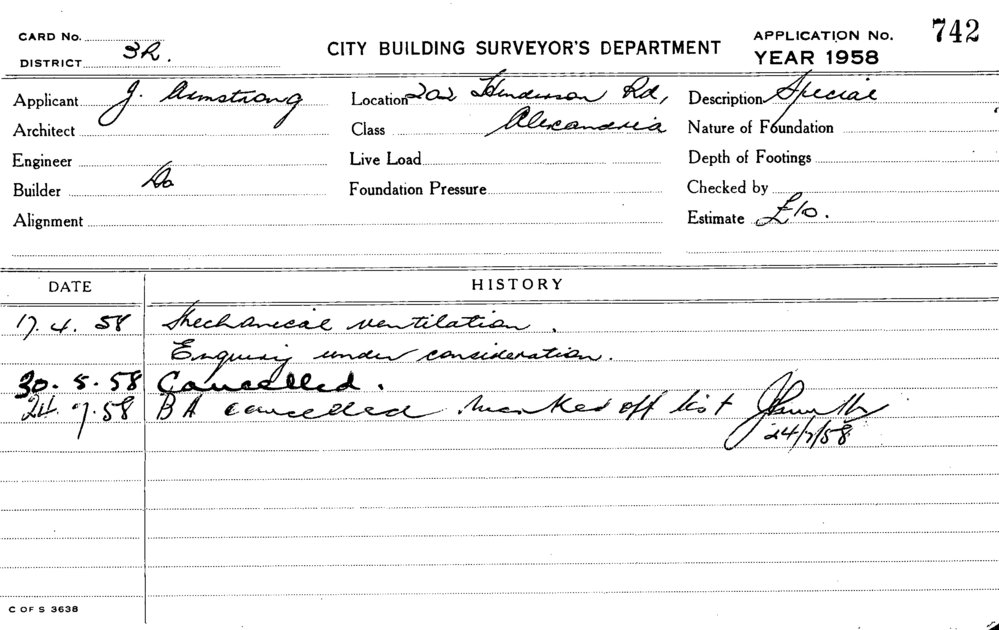 CARD No.
DISTRICT 3R.
CITY BUILDING SURVEYOR'S DEPARTMENT
APPLICATION No. 742
YEAR 1958
Applicant J. Armstrong
Location 202 Henderson Rd,
Description Special
Architect
Class Alexandria
Nature of Foundation
Engineer
Live Load
Depth of Footings
Builder Do
Foundation Pressure
Checked by
Alignment
Estimate £10.
DATE HISTORY
17. 4. 58 Mechanical ventilation.
Enquiry under consideration.
30. 5. 58 Cancelled.
24. 7. 58 BA cancelled marked off list
24/7/58
C OF S 3638